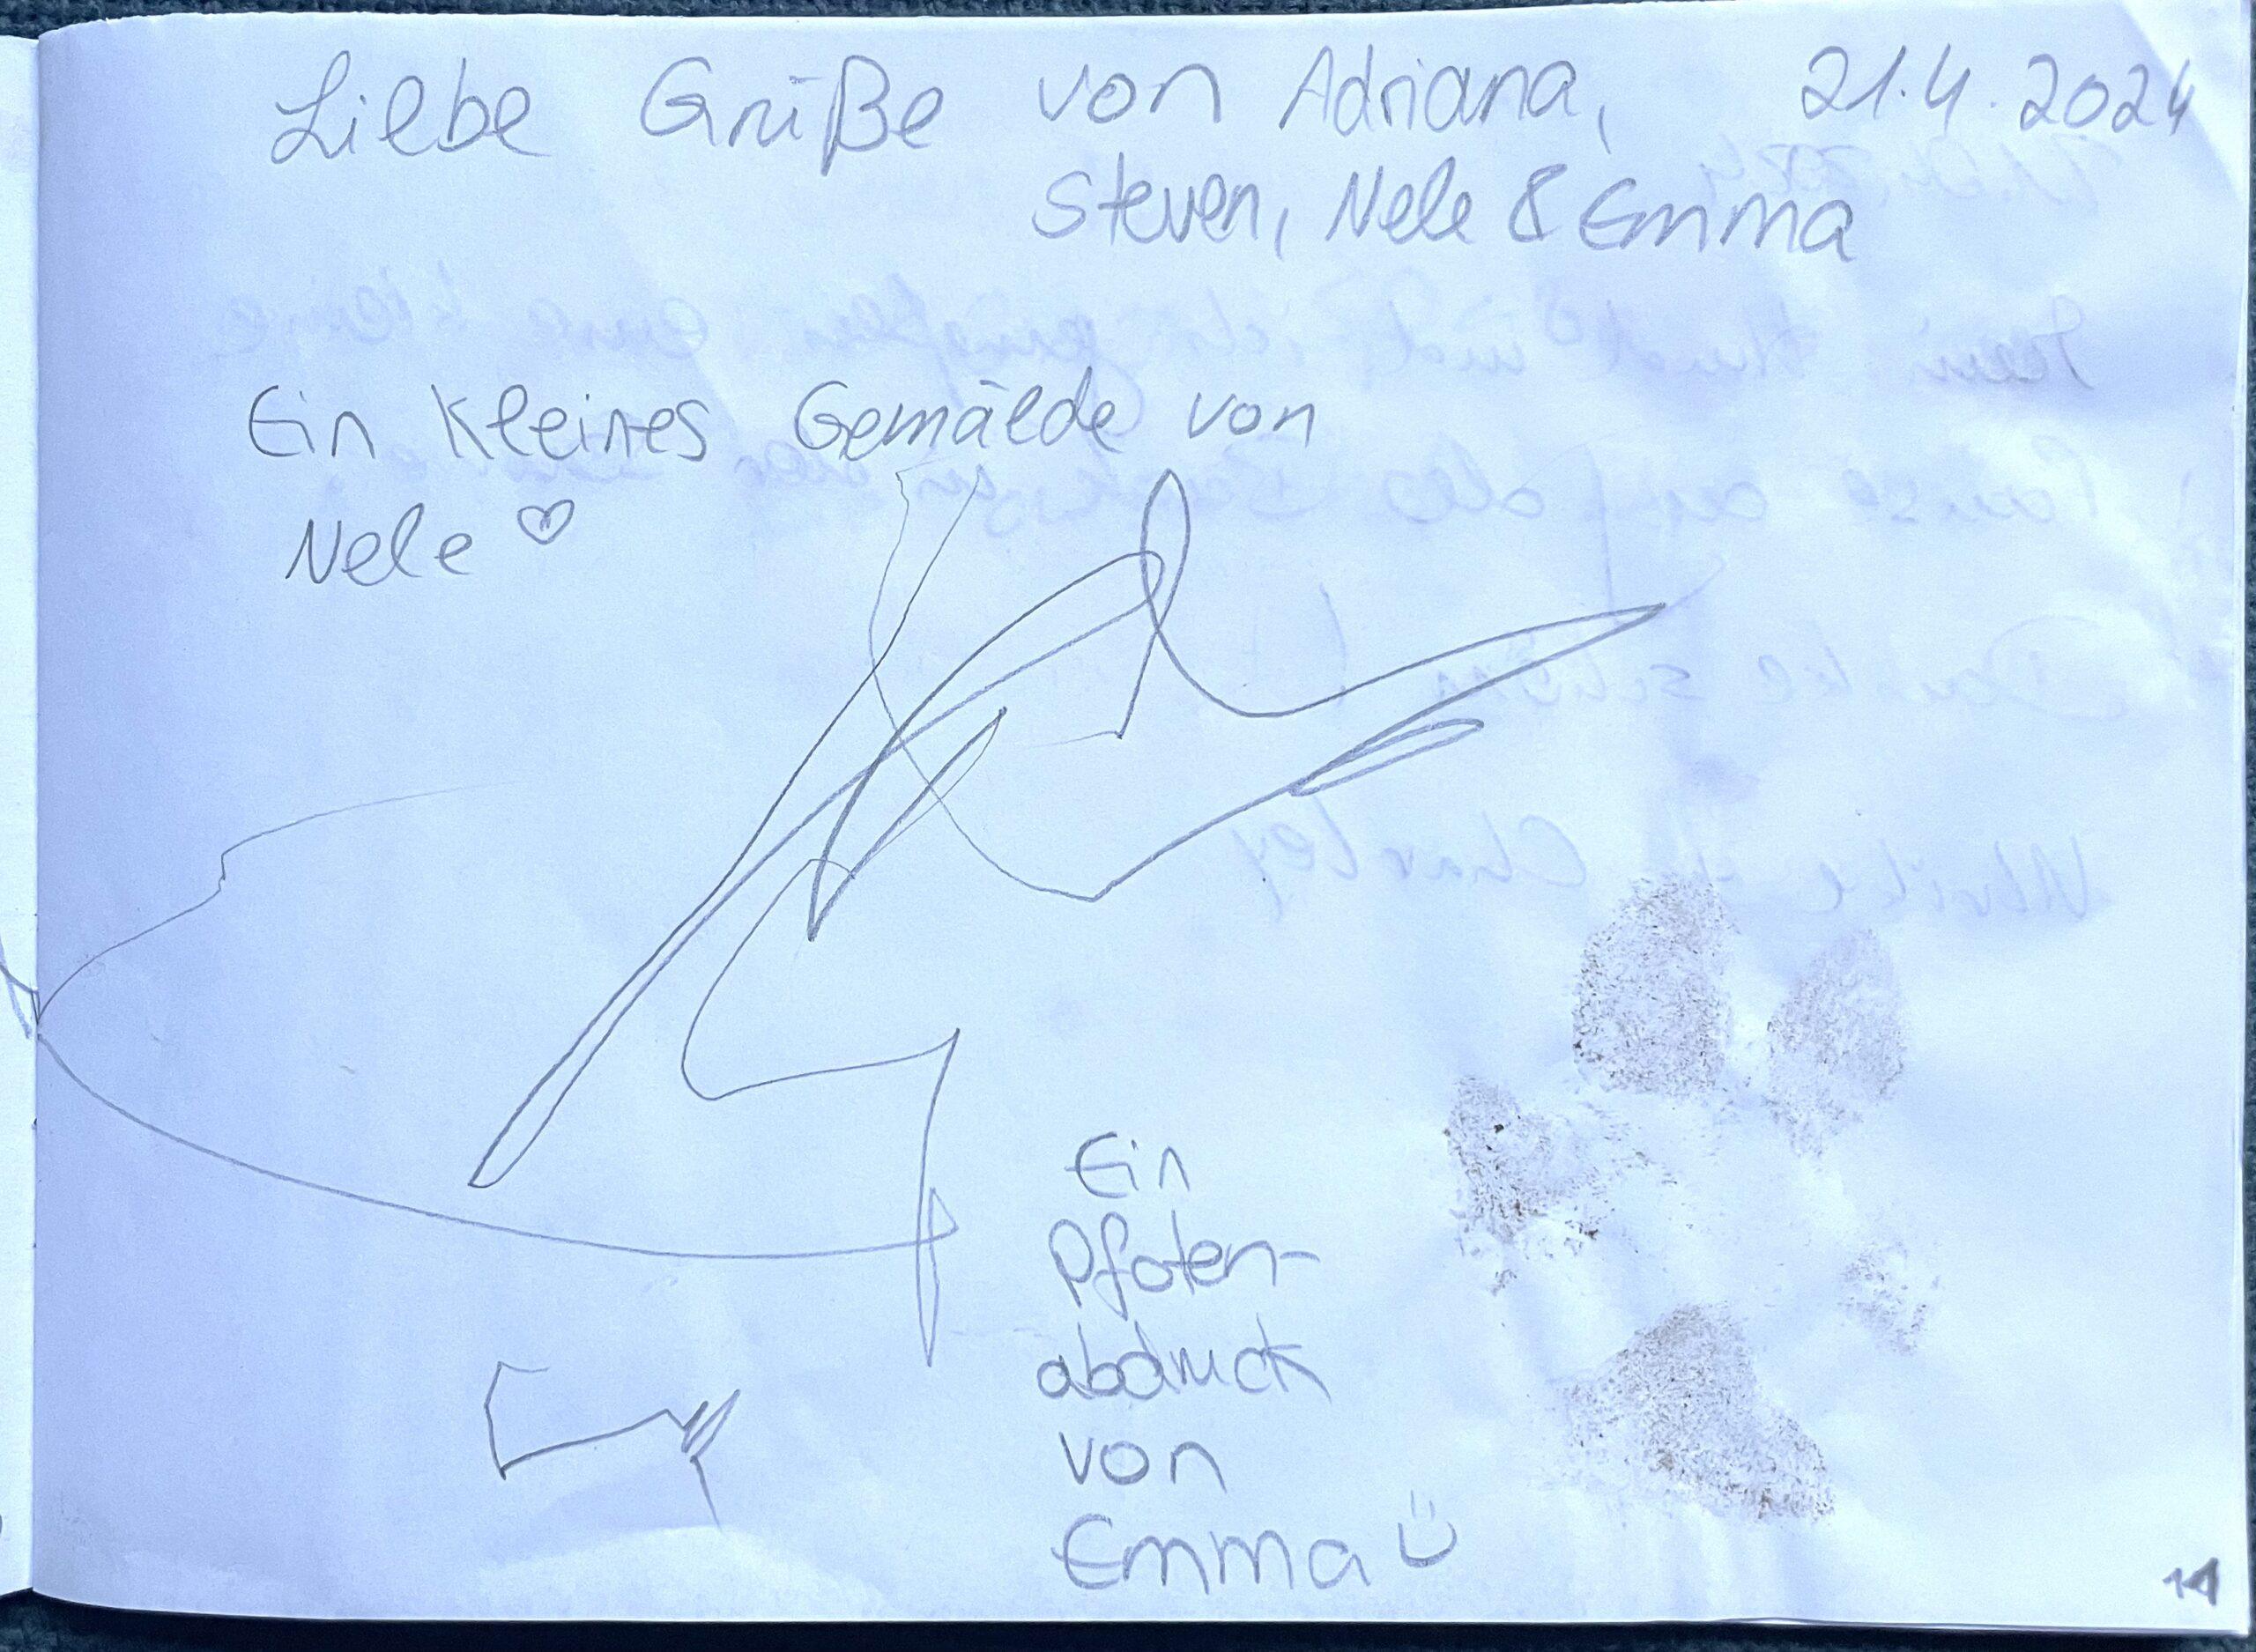 Liebe Grüße von Adriana, 21.4.2024
Steven, Nele & Emma
Ein kleines Gemälde von
Nele ♡
Ein
Pfoten-
abdruck
von
Emma Ü
14